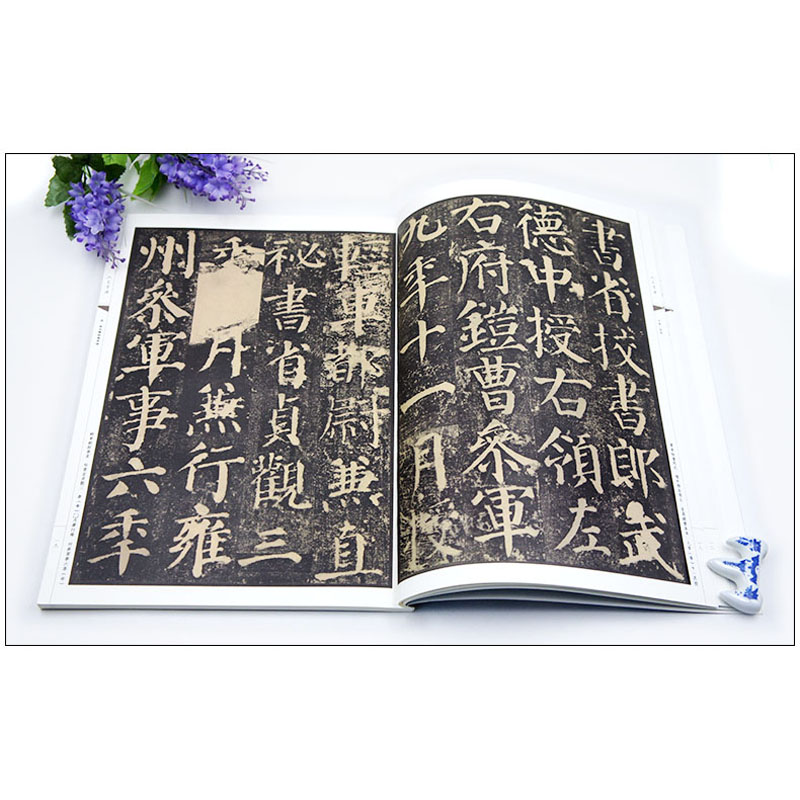 書省挍書郎武
德中授右領左
右府鎧曹叅軍
九年十一月授
車都尉兼直
秘書省貞觀三
年月兼行雍
州叅軍事六年